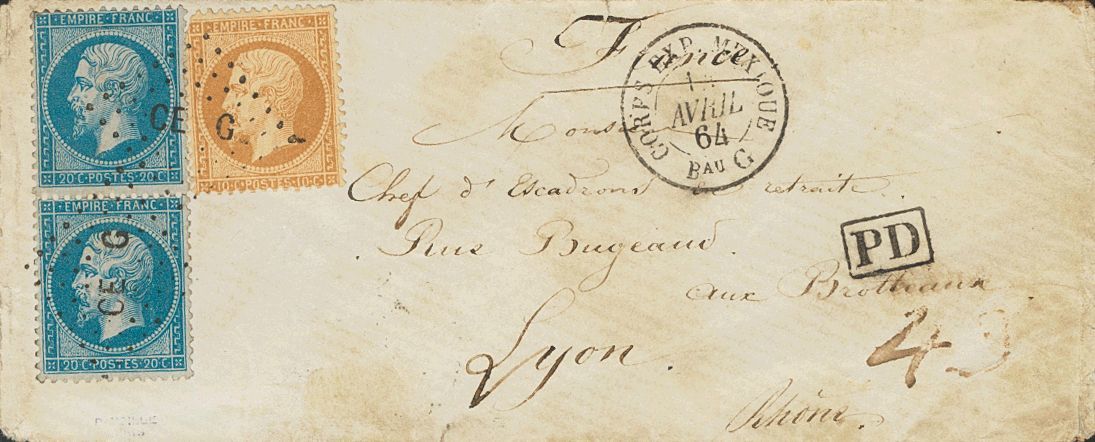 EMPIRE FRANC
20C·POSTES·20C
EMPIRE FRANC
10C·POSTES·10C
EMPIRE FRANC
20C·POSTES·20C
CE G
CE G
France
CORPS EXP. MEXIQUE
AVRIL
64
Bau G
Chef d'Escadrons en retraite
Rue Bugeaud
aux Brotteaux
PD
Lyon
Rhône